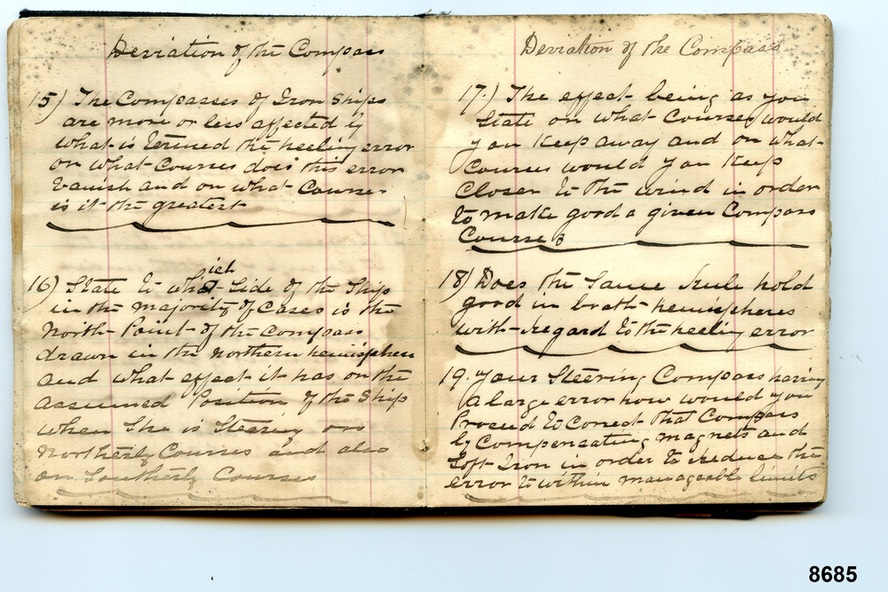 Deviation of the Compass
15) The Compasses of Iron Ships
are more or less affected by
what is termed the heeling error
on what Courses does this error
vanish and on what Courses
is it the greatest
16) State to which Side of the Ship
in the majority of Cases is the
North Point of the Compass
drawn in the northern hemisphere
and what effect it has on the
assumed Position of the Ship
when She is Steering on
Northerly Courses and also
on Southerly Courses
Deviation of the Compass
17.) The effect being as you
State on what Courses would
you Keep away and on what
Courses would you Keep
Closer to the wind in order
to make good a given Compass
Course
18) Does the Same Rule hold
good in both hemispheres
with regard to the heeling error
19. Your Steering Compass having
a large error how would you
Proceed to Correct that Compass
by Compensating magnets and
Soft Iron in order to reduce the
error to within manageable limits
8685